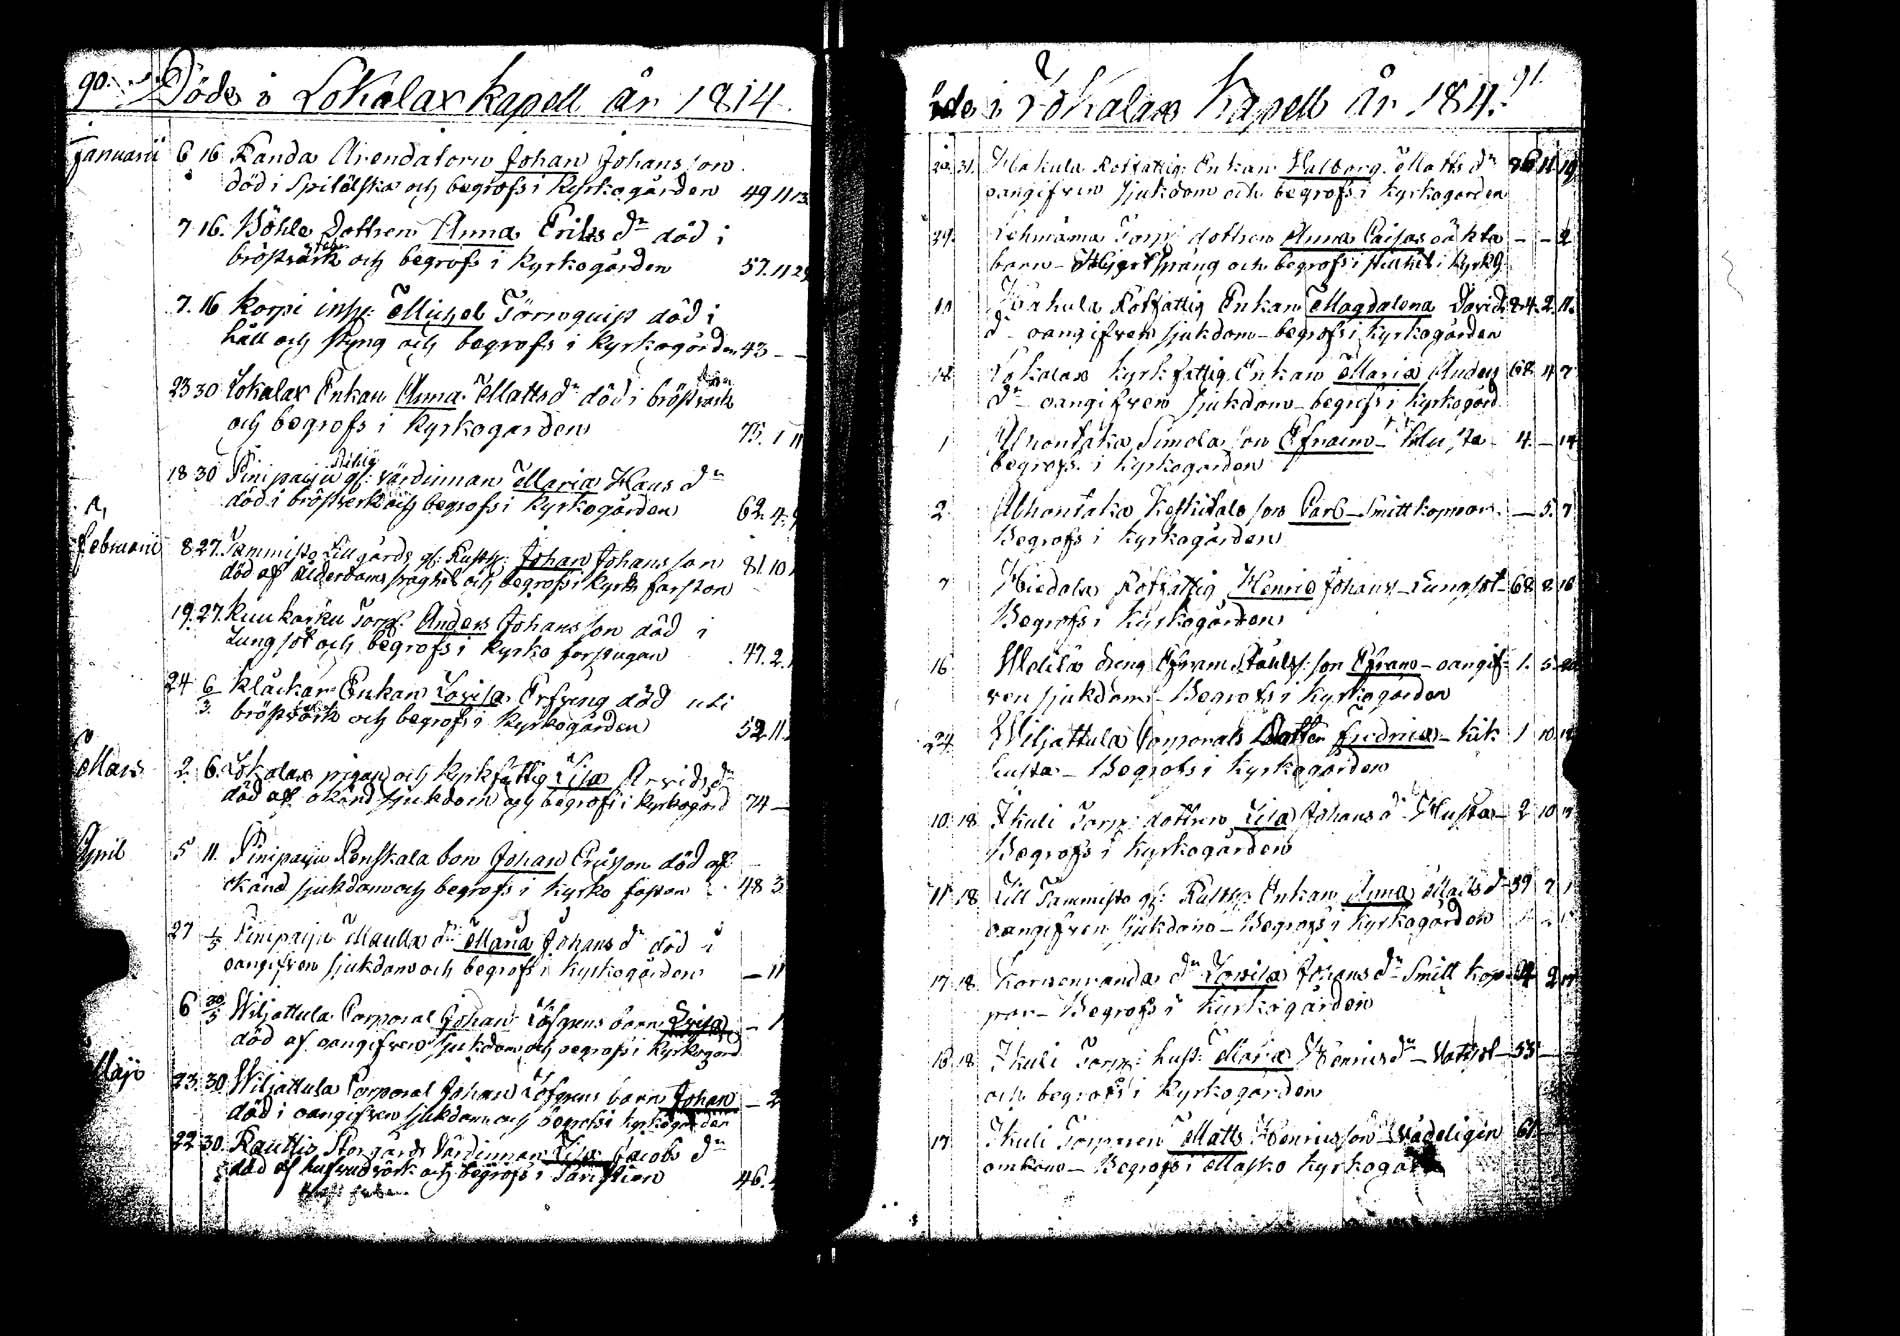 90.
Döde i Lokalax kapell år 1814.
Januarii 6 16 Randa Arendatorn Johan Johansson
död i Spitälska och begrofs i Kyrkogården 49 11 13
7 16. Böhle Dottren Anna Eriks dr död i
bröstvärk och begrofs i Kyrkogården 57. 11 29
7. 16 Korpi insp: Michel Törnquist död i
håll och styng och begrofs i Kyrkogården 43 - -
23 30 Lokalax Enkan Anna Matts dr död i bröstvärk
och begrofs i Kyrkogården 75. 1 11
18 30 Pinipaiju gf: värdinnan Maria Hans dr
död i bröstverk och begrofs i Kyrkogården 62. 4. 9
Februarii 8 27. Tammisto Lillgårds gf: Rusth: Johan Johansson 81. 10
död af ålderdoms svaghet och begrofs i Kyrko farston
19. 27. Kuukarku Torp: Anders Johansson död i
Lungsot och begrofs i Kyrko farstugan 47. 2.
24 6/3. Kläckar Enkan Lovisa Erfving död uti
bröstvärk och begrofs i Kyrkogården 52 11.
Mars 2. 6. Lokalax pigan och Kyrkfattig Lisa Arvids dr
död af okänd sjukdom och begrofs i Kyrkogård 74 -
April 5 11. Pinipaiju Penskala bon Johan Ericsson död af
okänd sjukdom och begrofs i Kyrko faston 48 3
27 1/5 Pinipaiju Maulla dr Maria Johans dr död i
oangifven sjukdom och begrofs i Kyrkogården - 11
6 30/5 Wiljattula Corporal Johan Löfgrens barn Lovisa - 1
död af oangifven sjukdom och begrofs i Kyrkogård
Majo 23. 30. Wiljattula Corporal Johan Löfgrens barn Johan - 2
död i oangifven sjukdom och begrofs i Kyrkogården
22 30. Rautila Storgårds Värdinnan Lisa Jacobs dr
död af hufvudvärk och begrofs i Farstuen 46.
91.
Döde i Lokalax Kapell År 1814.
20. 31. Hakula Rotfattig: Enkan Walborg Matts dr 86 11 19
oangifven sjukdom och begrofs i Kyrkogården
29. Lehmämä Torp: dottren Anna Caisas oäkta - - 2
barn - Hjertsprång och begrofs i kyrkg
10 Hakula Rotfattig Enkan Magdalena Davids 84. 2. 11.
dr oangifven sjukdom - begrofs i Kyrkogården
18 Lokalax kyrkfattig Enkan Maria Anders 68 4 7
dr - oangifven sjukdom - begrofs i Kyrkogård
1 Alhontaka Simola son Efraim - 4. - 14
begrofs i Kyrkogården
2 Alhontaka Keskitalo son Carl - Smittkoppor. - 5. 7
Begrofs i Kyrkogården
7 Hiedala Rotfattig Henric Johans - Lungsot - 68 8 16
Begrofs i Kyrkogården
16 dreng Efraim son Efraim - oangif- 1. 5 20
ven sjukdom - Begrofs i Kyrkogården
24 Wiljattula Corporals Dotter Fredrica - kik 1 10 12
husta - Begrofs i Kyrkogården
10. 18 Ikuli Torp: dottren Lisa Johans dr - Husta - 2 10
Begrofs i Kyrkogården
11 18 Lill Tammisto gf: Rusth: Enkan Anna Matts d - 59 7 1
oangifven sjukdom - Begrofs i Kyrkogården
17. 18. Korvenranda dr Lovisa Johans dr - Smitt kop- 4 2 17
por - Begrofs i Kyrkogården
13. 18 Ikuli Torp: hust: Maria Henrics dr - Vatsot - 53 -
och begrofs i Kyrkogården
17 Ikuli Torparen Matts Henricsson - Vådeligen 61. -
omkom - Begrofs i Masko Kyrkogård